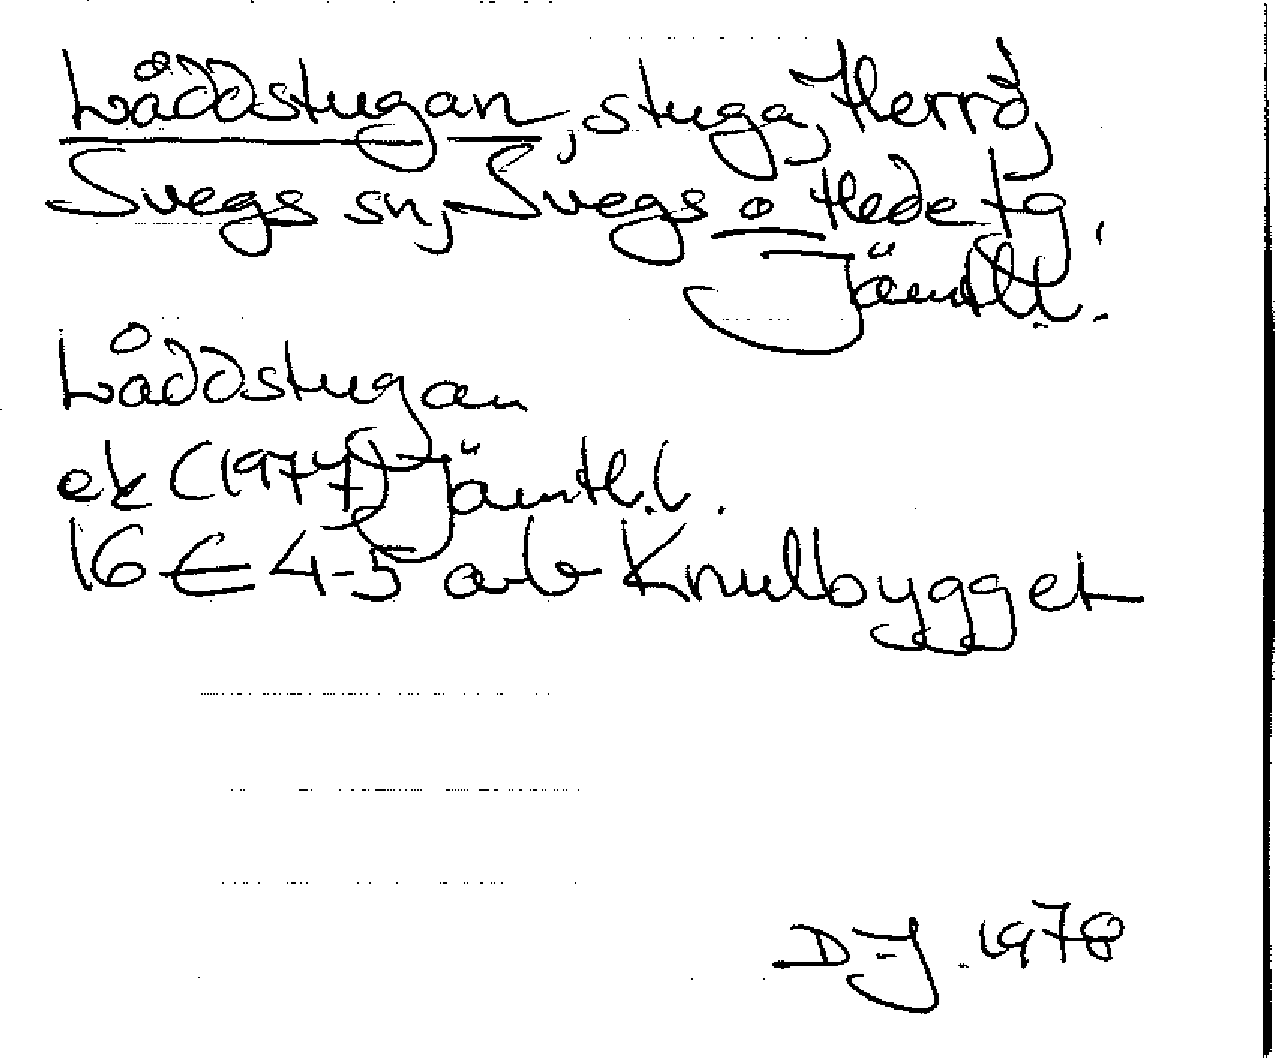 Låddstugan, stuga, Herrö,
Svegs sn, Svegs o Hede tg,
Jämtl.
Låddstugan
ek (1977) Jämtl.l.
16 E 4-5 a-b Knulbygget
D-J. 1978